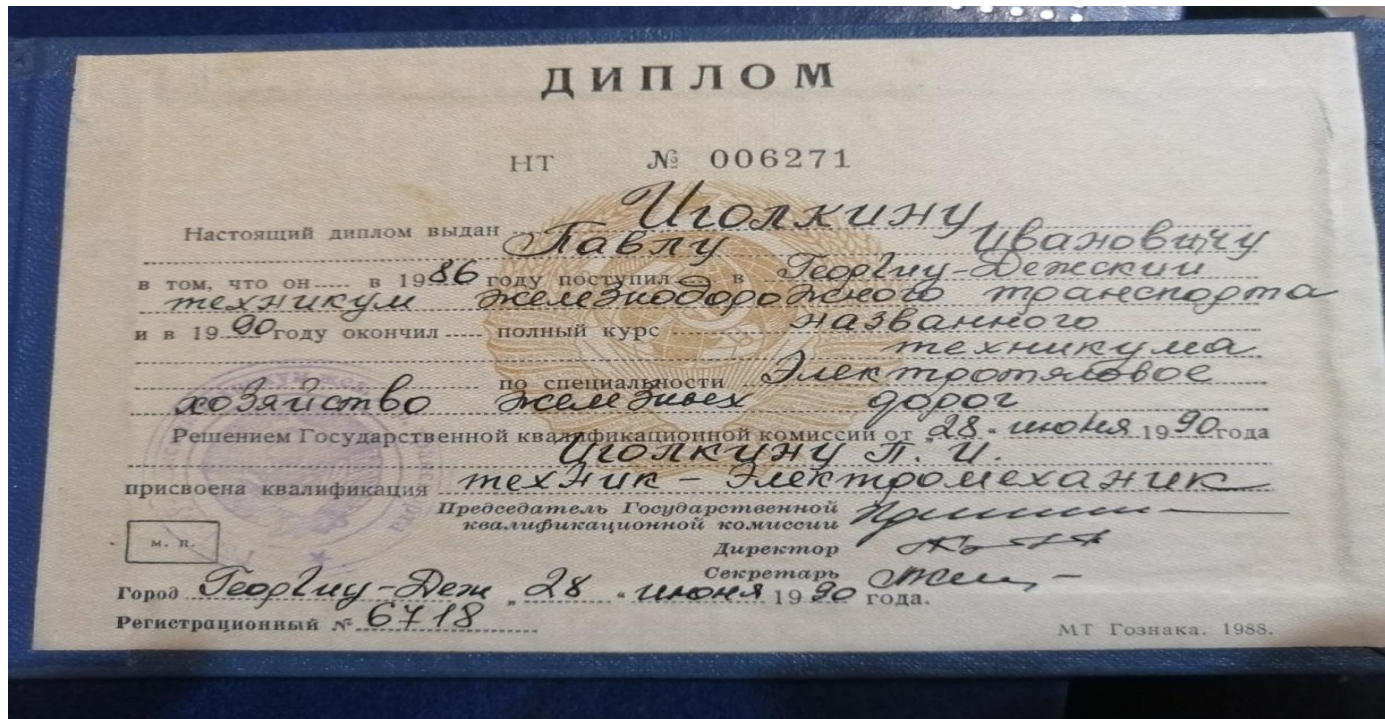 ДИПЛОМ
НТ № 006271
Настоящий диплом выдан Иголкину
Павлу Ивановичу
в том, что он в 1986 году поступил в Георгиу-Дежский
техникум железнодорожного транспорта
и в 1990 году окончил полный курс названного
техникума
по специальности Электротяговое
хозяйство железных дорог
Решением Государственной квалификационной комиссии от „28“ июня 1990 года
Иголкину П. И.
присвоена квалификация техник - электромеханик
Председатель Государственной
квалификационной комиссии
Директор
Секретарь
м. п.
Город Георгиу-Деж „28“ июня 1990 года.
Регистрационный № 6718
МТ Гознака. 1988.